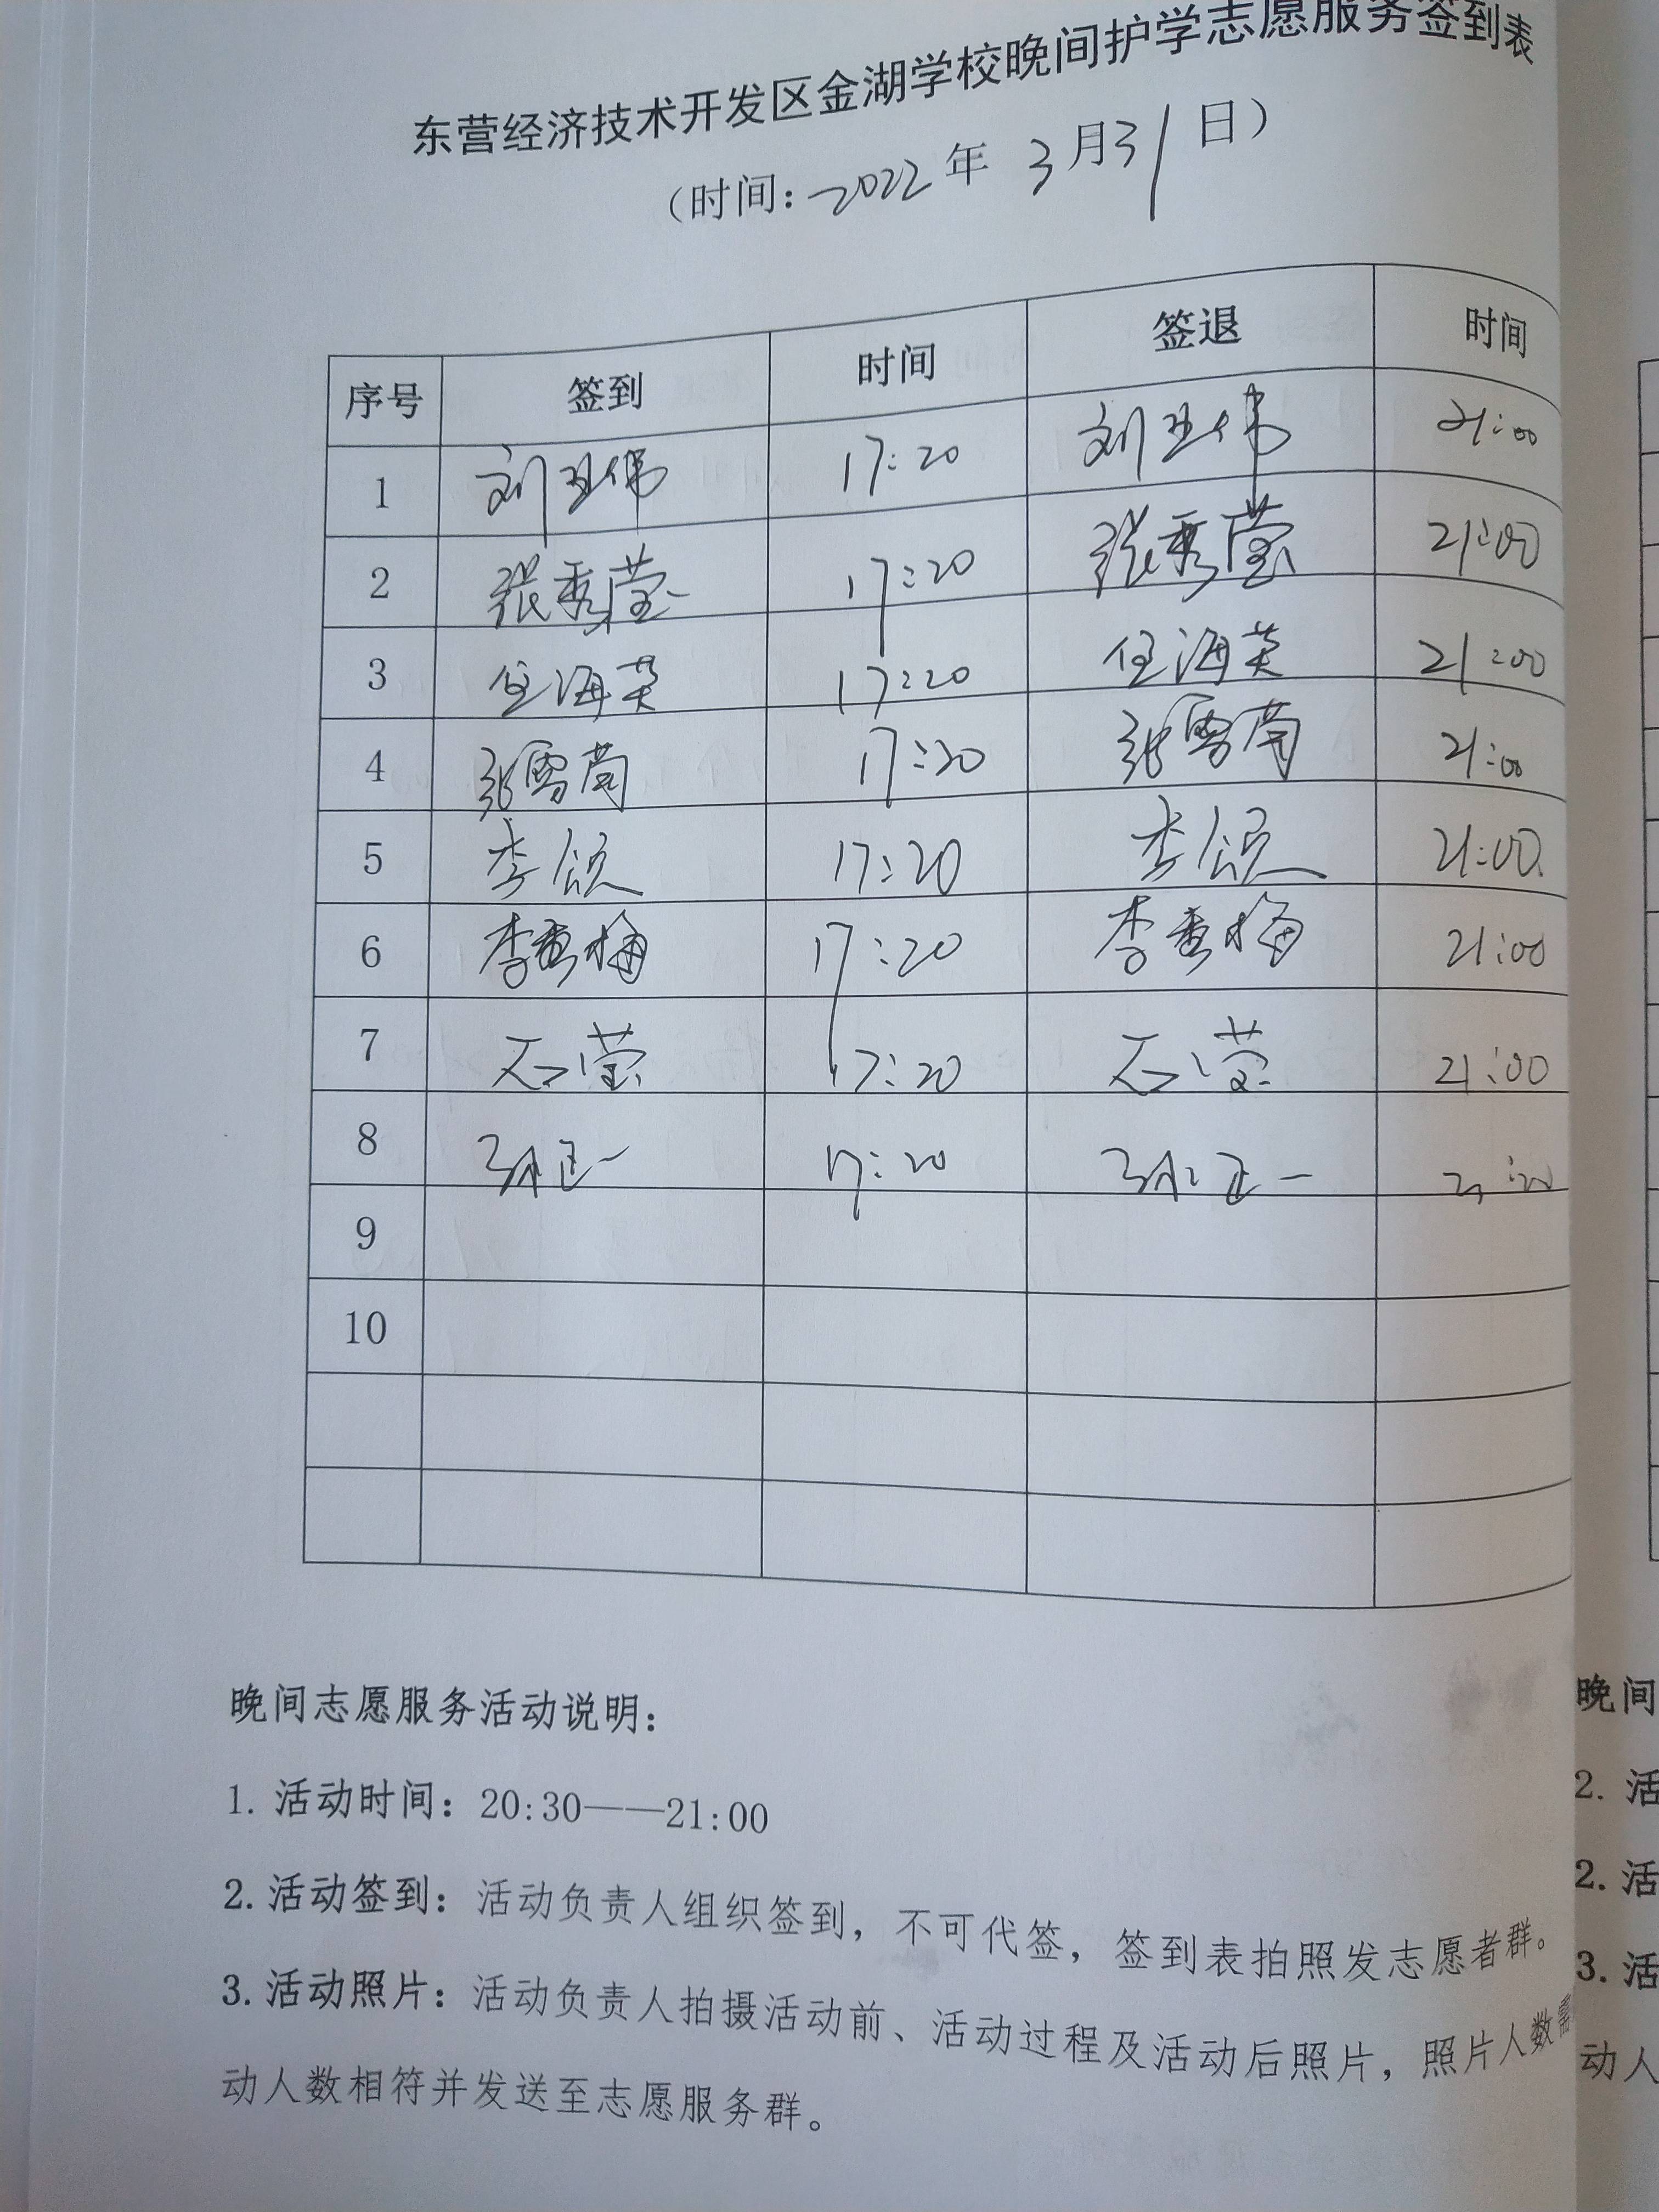 东营经济技术开发区金湖学校晚间护学志愿服务签到表
（时间：2022年3月31日）
序号 签到 时间 签退 时间
1 刘卫伟 17:20 刘卫伟 21:00
2 张秀莹 17:20 张秀莹 21:00
3 任海英 17:20 任海英 21:00
4 张雪菊 17:20 张雪菊 21:00
5 李颂 17:20 李颂 21:00
6 李贵梅 17:20 李贵梅 21:00
7 石莹 17:20 石莹 21:00
8 17:20
9
10
晚间志愿服务活动说明：
1. 活动时间：20:30——21:00
2. 活动签到：活动负责人组织签到，不可代签，签到表拍照发志愿者群。
3. 活动照片：活动负责人拍摄活动前、活动过程及活动后照片，照片人数需
动人数相符并发送至志愿服务群。
晚间
2. 活
2. 活
3. 活
动人